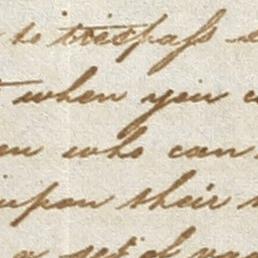 to trespass
when you
who can
upon their
a set of